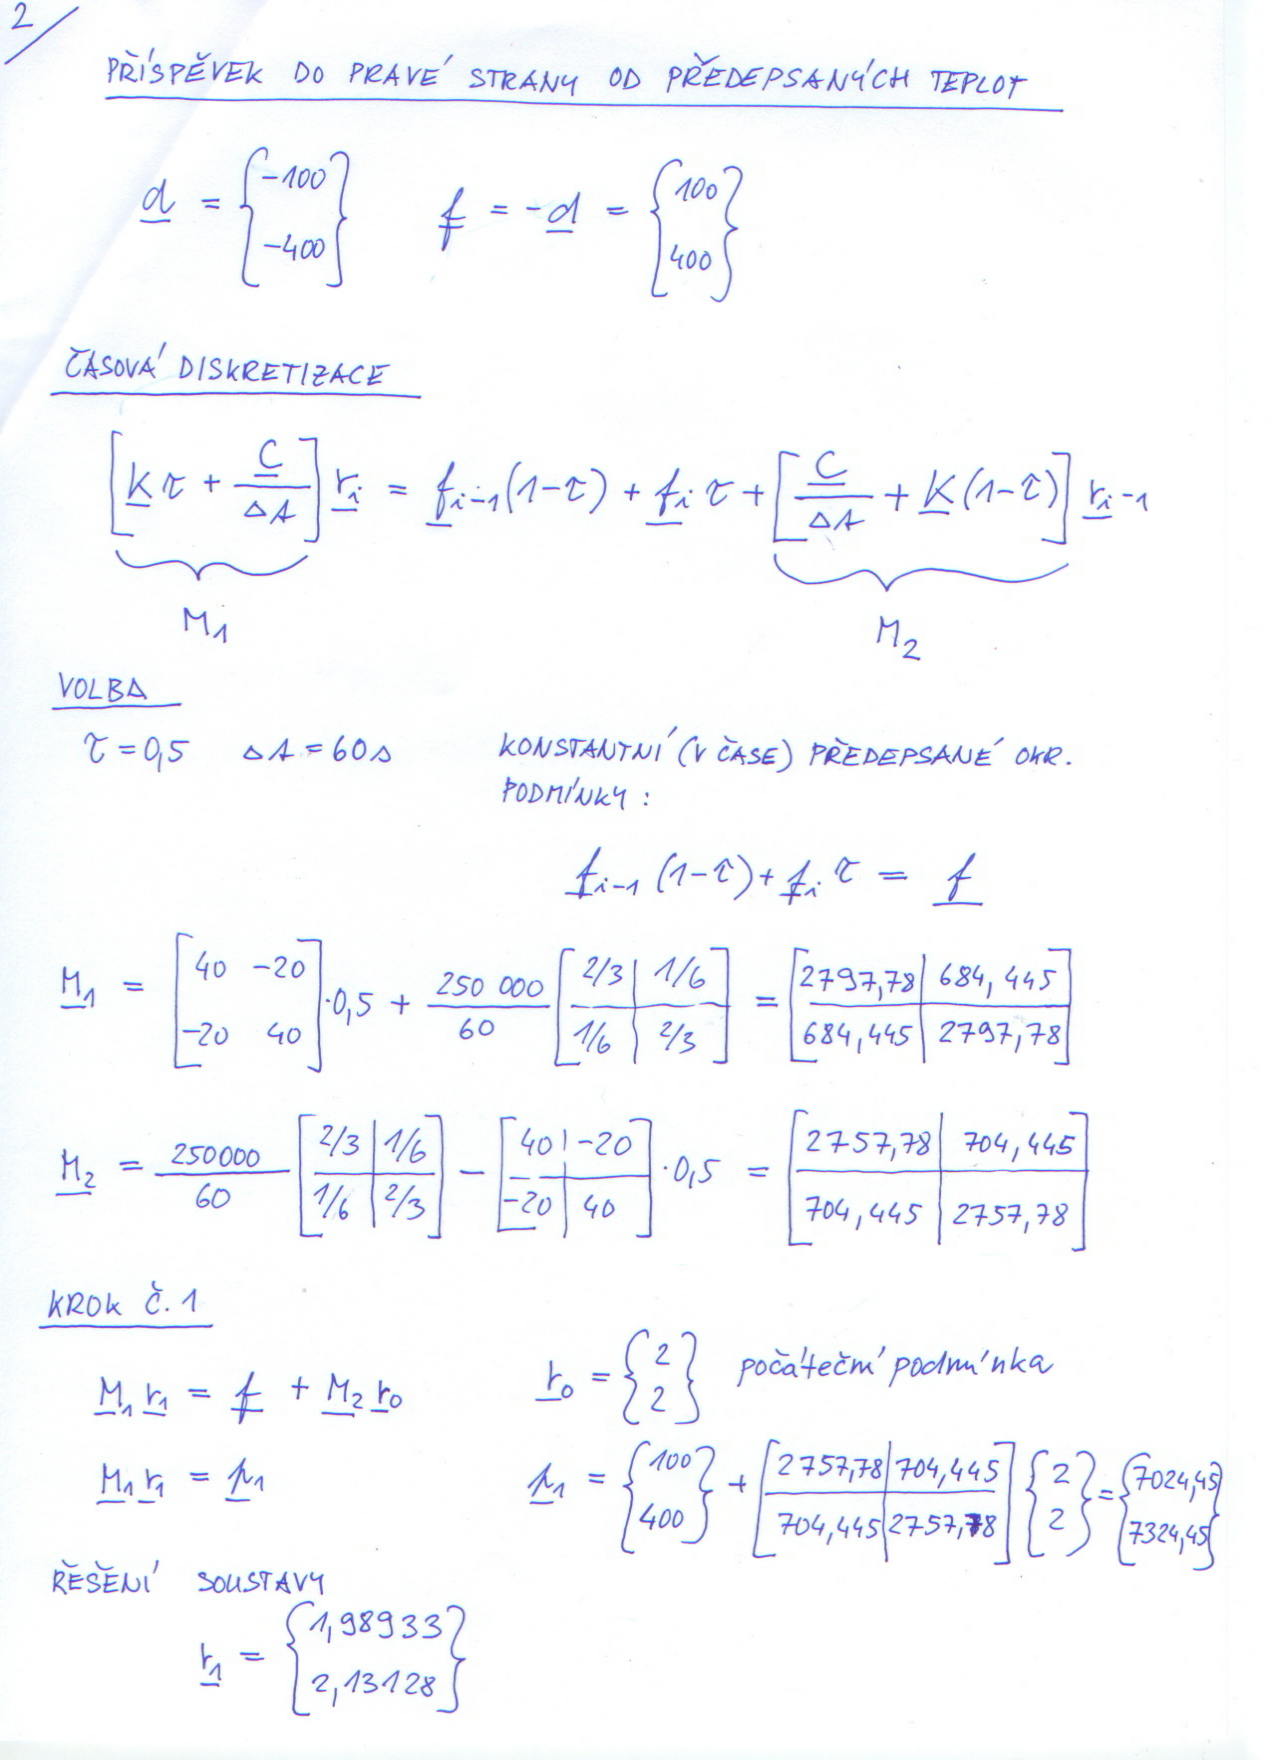 2/
PŘÍSPĚVEK DO PRAVÉ STRANY OD PŘEDEPSANÝCH TEPLOT
d = {-100 -400} f = -d = {100 400}
ČASOVÁ DISKRETIZACE
[K τ + C/Δt] r_i = f_{i-1}(1-τ) + f_i τ + [C/Δt + K(1-τ)] r_{i-1}
M1 M2
VOLBA
τ = 0,5 Δt = 60s KONSTANTNÍ (V ČASE) PŘEDEPSANÉ OKR.
PODMÍNKY:
f_{i-1}(1-τ) + f_i τ = f
M1 = [40 -20 -20 40] · 0,5 + 250 000/60 [2/3 1/6 1/6 2/3] = [2797,78 684,445 684,445 2797,78]
M2 = 250000/60 [2/3 1/6 1/6 2/3] - [40 -20 -20 40] · 0,5 = [2757,78 704,445 704,445 2757,78]
KROK Č. 1
M1 r1 = f + M2 r0 r0 = {2 2} počáteční podmínka
M1 r1 = p1 p1 = {100 400} + [2757,78 704,445 704,445 2757,78] {2 2} = {7024,45 7324,45}
ŘEŠENÍ SOUSTAVY
r1 = {1,98933 2,13128}